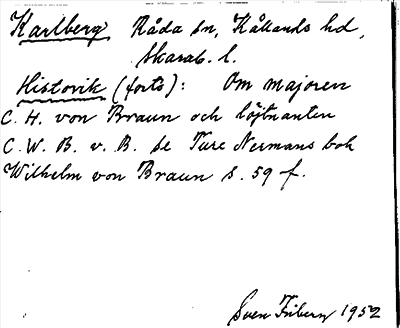 Karlberg Råda sn, Kållands hd,
Skarab. l.
Historik (forts): Om majoren
C. H. von Braun och löjtnanten
C. W. B. v. B. se Ture Nermans bok
Wilhelm von Braun s. 59 f.
Sven Friberg 1952